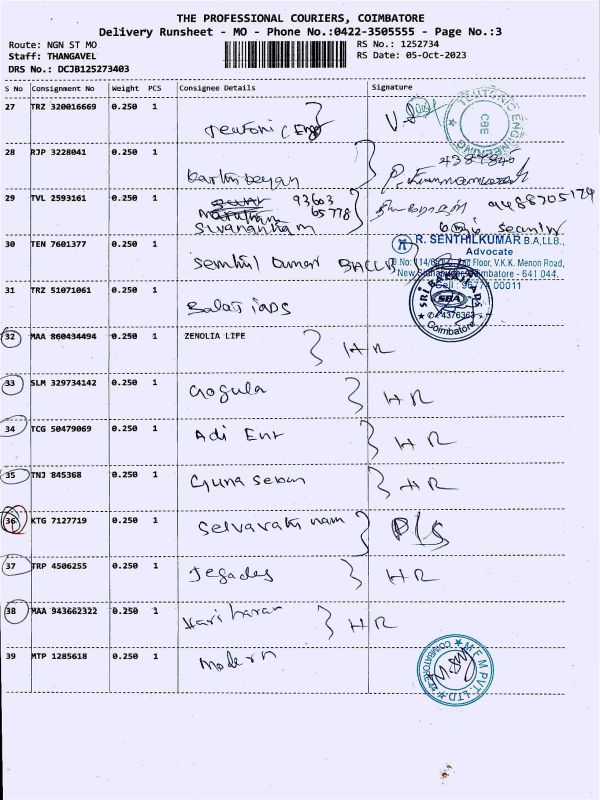 THE PROFESSIONAL COURIERS, COIMBATORE
Delivery Runsheet - MO - Phone No.:0422-3505555 - Page No.:3
Route: NGN ST MO RS No.: 1252734
Staff: THANGAVEL RS Date: 05-Oct-2023
DRS No.: DCJB125273403
S No Consignment No Weight PCS Consignee Details Signature
27 TRZ 320016669 0.250 1
TEUTONIC ENGINEERING CBE
28 RJP 3228041 0.250 1
29 TVL 2593161 0.250 1 93603
65778
30 TEN 7601377 0.250 1
R. SENTHILKUMAR B.A,LLB.,
Advocate
Floor, V.K.K. Menon Road,
Coimbatore - 641 044.
31 TRZ 51071061 0.250 1 Balaji ADS
SRI BALAJI ADS SBA Coimbatore
32 MAA 860434494 0.250 1 ZENOLIA LIFE HR
33 SLM 329734142 0.250 1 Gogula HR
34 TCG 50479069 0.250 1 Adi Ent HR
35 TNJ 845368 0.250 1 HR
36 KTG 7127719 0.250 1 P/S
37 TRP 4506255 0.250 1 HR
38 MAA 943662322 0.250 1 Hariharan HR
39 MTP 1285618 0.250 1 Modern
M.F.M PVT. LTD COIMBATORE